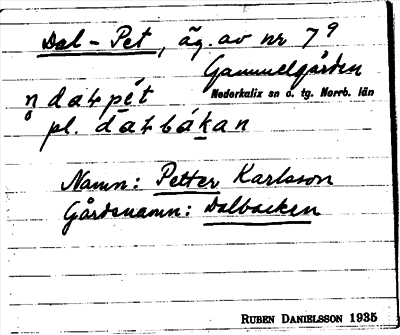 Dal-Pet, äg. av nr 7⁹
Gammelgården
Nederkalix sn o. tg. Norrb. län
n̥ daɫpét
pl. daɫbákan
Namn: Petter Karlsson
Gårdsnamn: Dalbacken
RUBEN DANIELSSON 1935